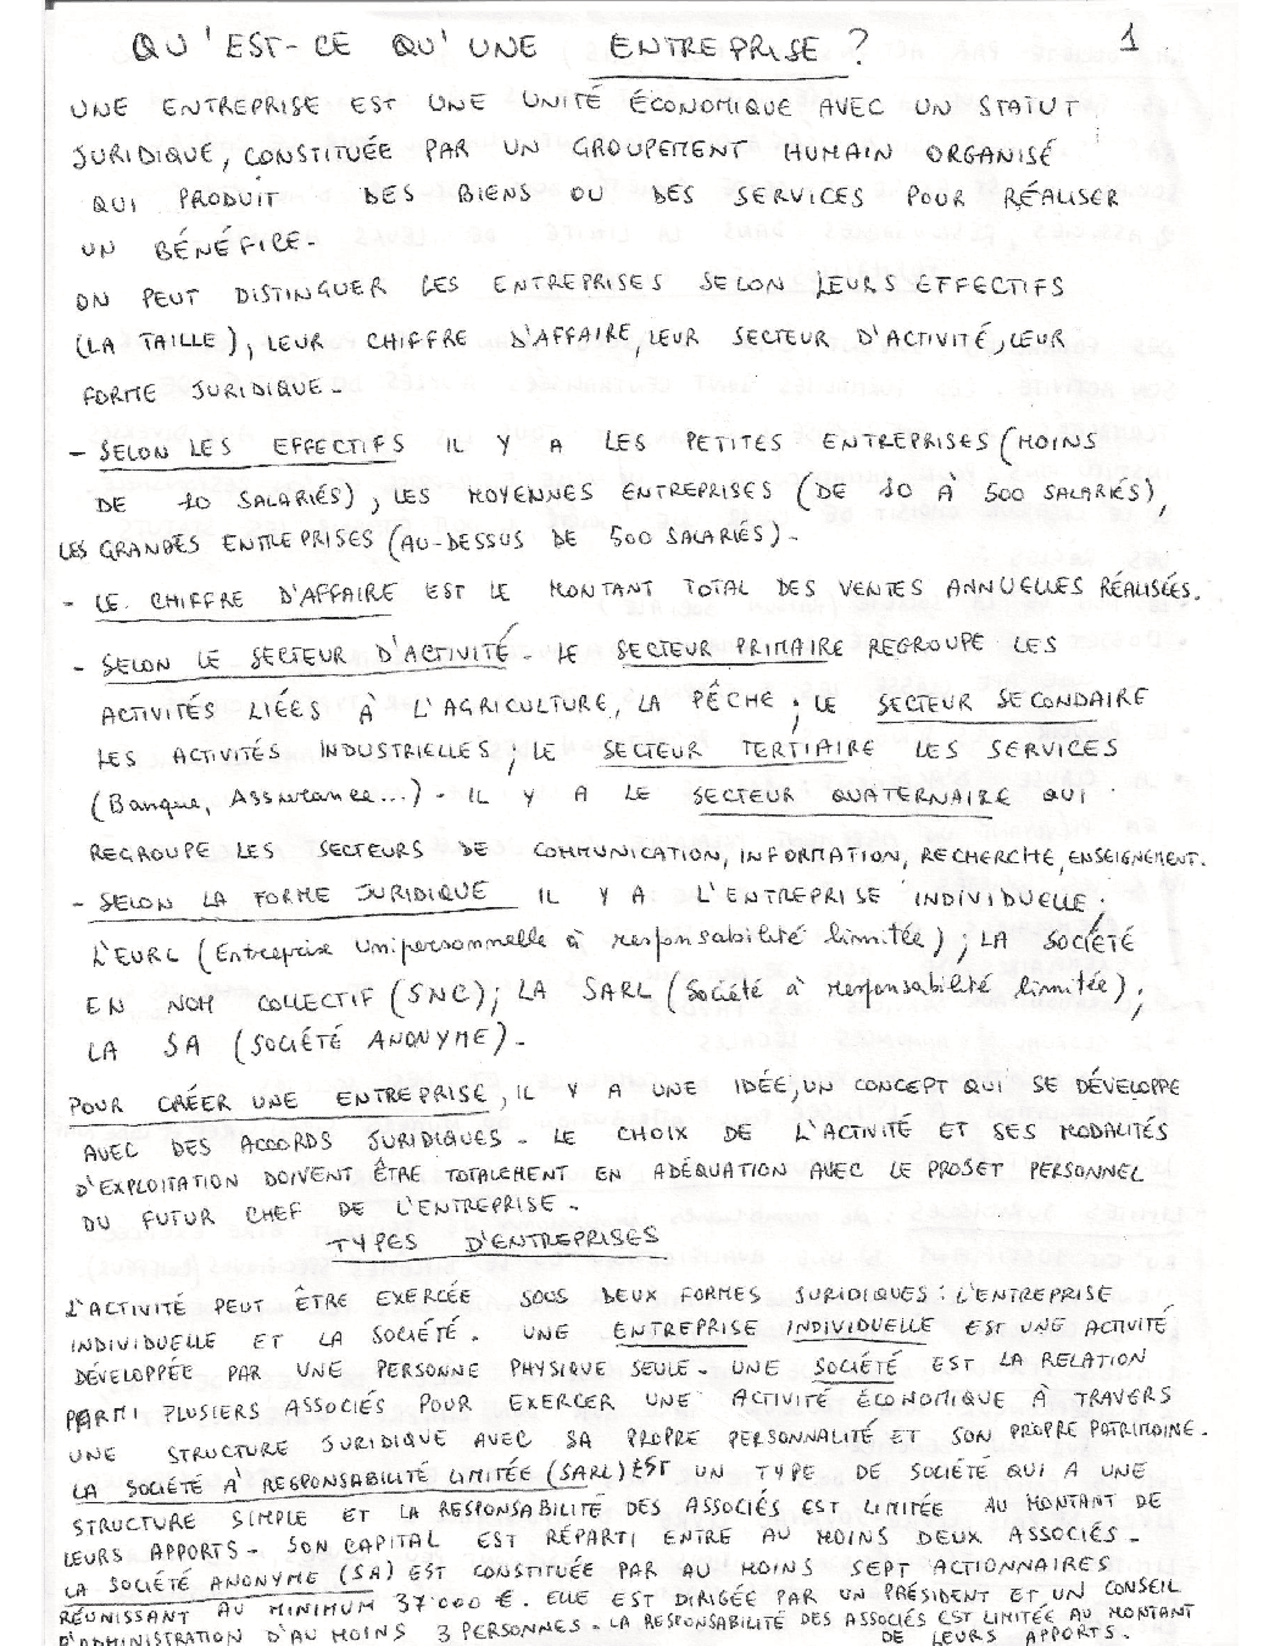 QU'EST-CE QU'UNE ENTREPRISE ? 1
UNE ENTREPRISE EST UNE UNITÉ ÉCONOMIQUE AVEC UN STATUT
JURIDIQUE, CONSTITUÉE PAR UN GROUPEMENT HUMAIN ORGANISÉ
QUI PRODUIT DES BIENS OU DES SERVICES POUR RÉALISER
UN BÉNÉFICE.
ON PEUT DISTINGUER LES ENTREPRISES SELON LEURS EFFECTIFS
(LA TAILLE), LEUR CHIFFRE D'AFFAIRE, LEUR SECTEUR D'ACTIVITÉ, LEUR
FORME JURIDIQUE.
- SELON LES EFFECTIFS IL Y A LES PETITES ENTREPRISES (MOINS
DE 10 SALARIÉS), LES MOYENNES ENTREPRISES (DE 10 À 500 SALARIÉS),
LES GRANDES ENTREPRISES (AU-DESSUS DE 500 SALARIÉS).
- LE CHIFFRE D'AFFAIRE EST LE MONTANT TOTAL DES VENTES ANNUELLES RÉALISÉES.
- SELON LE SECTEUR D'ACTIVITÉ. LE SECTEUR PRIMAIRE REGROUPE LES
ACTIVITÉS LIÉES À L'AGRICULTURE, LA PÊCHE ; LE SECTEUR SECONDAIRE
LES ACTIVITÉS INDUSTRIELLES ; LE SECTEUR TERTIAIRE LES SERVICES
(Banque, Assurance...). IL Y A LE SECTEUR QUATERNAIRE QUI
REGROUPE LES SECTEURS DE COMMUNICATION, INFORMATION, RECHERCHE, ENSEIGNEMENT.
- SELON LA FORME JURIDIQUE IL Y A L'ENTREPRISE INDIVIDUELLE ;
L'EURL (Entreprise Unipersonnelle à responsabilité limitée) ; LA SOCIÉTÉ
EN NOM COLLECTIF (SNC) ; LA SARL (Société à responsabilité limitée) ;
LA SA (SOCIÉTÉ ANONYME).
POUR CRÉER UNE ENTREPRISE, IL Y A UNE IDÉE, UN CONCEPT QUI SE DÉVELOPPE
AVEC DES ACCORDS JURIDIQUES. LE CHOIX DE L'ACTIVITÉ ET SES MODALITÉS
D'EXPLOITATION DOIVENT ÊTRE TOTALEMENT EN ADÉQUATION AVEC LE PROJET PERSONNEL
DU FUTUR CHEF DE L'ENTREPRISE.
TYPES D'ENTREPRISES
L'ACTIVITÉ PEUT ÊTRE EXERCÉE SOUS DEUX FORMES JURIDIQUES : L'ENTREPRISE
INDIVIDUELLE ET LA SOCIÉTÉ. UNE ENTREPRISE INDIVIDUELLE EST UNE ACTIVITÉ
DÉVELOPPÉE PAR UNE PERSONNE PHYSIQUE SEULE. UNE SOCIÉTÉ EST LA RELATION
PARMI PLUSIERS ASSOCIÉS POUR EXERCER UNE ACTIVITÉ ÉCONOMIQUE À TRAVERS
UNE STRUCTURE JURIDIQUE AVEC SA PROPRE PERSONNALITÉ ET SON PROPRE PATRIMOINE.
LA SOCIÉTÉ À RESPONSABILITÉ LIMITÉE (SARL) EST UN TYPE DE SOCIÉTÉ QUI A UNE
STRUCTURE SIMPLE ET LA RESPONSABILITÉ DES ASSOCIÉS EST LIMITÉE AU MONTANT DE
LEURS APPORTS. SON CAPITAL EST RÉPARTI ENTRE AU MOINS DEUX ASSOCIÉS.
LA SOCIÉTÉ ANONYME (SA) EST CONSTITUÉE PAR AU MOINS SEPT ACTIONNAIRES
RÉUNISSANT AU MINIMUM 37'000 €. ELLE EST DIRIGÉE PAR UN PRÉSIDENT ET UN CONSEIL
D'ADMINISTRATION D'AU MOINS 3 PERSONNES. LA RESPONSABILITÉ DES ASSOCIÉS EST LIMITÉE AU MONTANT
DE LEURS APPORTS.